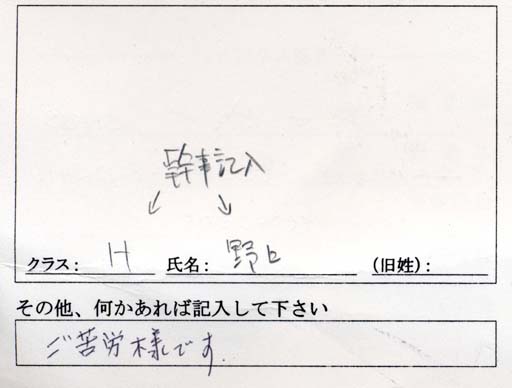 幹事記入
↙ ↘
クラス： H 氏名： 野口 （旧姓）：
その他、何かあれば記入して下さい
ご苦労様です.